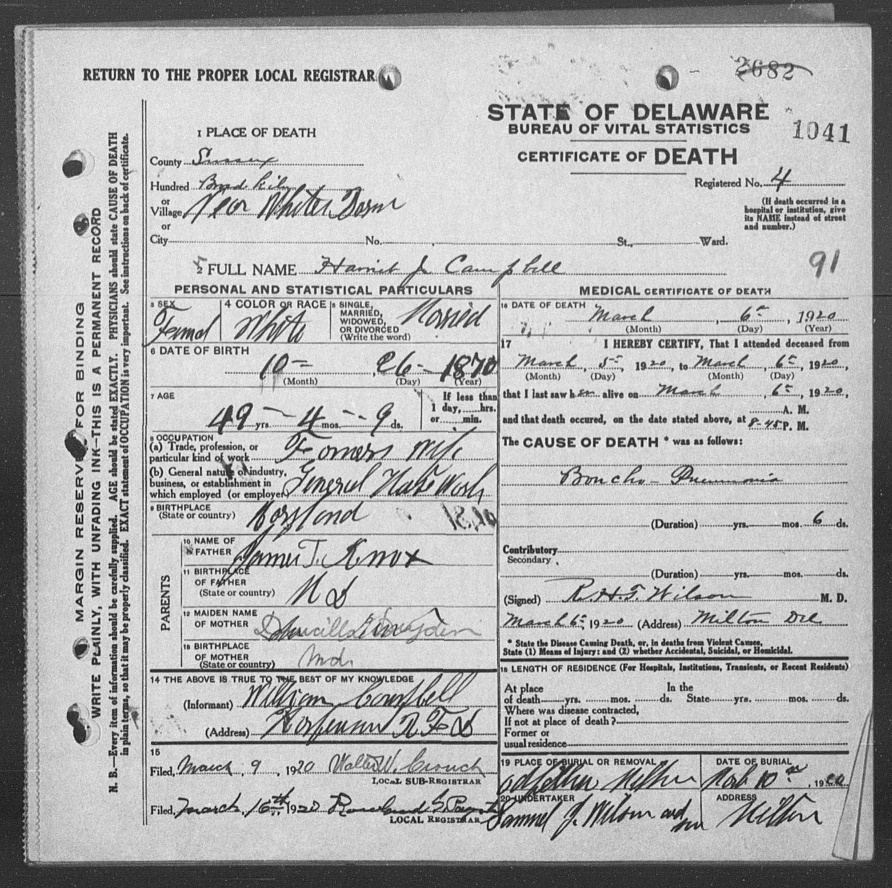 RETURN TO THE PROPER LOCAL REGISTRAR
2682
STATE OF DELAWARE
BUREAU OF VITAL STATISTICS
1041
CERTIFICATE OF DEATH
Registered No. 4
(If death occurred in a hospital or institution, give its NAME instead of street and number.)
1 PLACE OF DEATH
County Sussex
Hundred
or
Village Near Whites
or
City No. St., Ward.
91
2 FULL NAME Harriet J Campbell
PERSONAL AND STATISTICAL PARTICULARS
3 SEX
Femal
4 COLOR OR RACE
White
5 SINGLE, MARRIED, WIDOWED, OR DIVORCED (Write the word)
Married
6 DATE OF BIRTH
10 26 1870
(Month) (Day) (Year)
7 AGE
49 yrs. 4 mos. 9 ds.
If less than 1 day, hrs. or min.
8 OCCUPATION
(a) Trade, profession, or particular kind of work Farmers wife
(b) General nature of industry, business, or establishment in which employed (or employer) General House Work
9 BIRTHPLACE
(State or country) Maryland
PARENTS
10 NAME OF FATHER James T. Knox
11 BIRTHPLACE OF FATHER
(State or country) M D
12 MAIDEN NAME OF MOTHER
13 BIRTHPLACE OF MOTHER
(State or country) Md.
14 THE ABOVE IS TRUE TO THE BEST OF MY KNOWLEDGE
(Informant) William Campbell
(Address) R F D
15
Filed, March 9, 1920 Walter W. Crouch
LOCAL SUB-REGISTRAR
Filed, March 16th 1920
LOCAL REGISTRAR
MEDICAL CERTIFICATE OF DEATH
16 DATE OF DEATH
March 6th, 1920
(Month) (Day) (Year)
17 I HEREBY CERTIFY, That I attended deceased from
March 5th, 1920, to March 6th, 1920,
(Month) (Day) (Month) (Day)
that I last saw her alive on March 6th, 1920,
and that death occured, on the date stated above, at 8-45 A. M. P. M.
The CAUSE OF DEATH * was as follows:
Boncho-Pneumonia
(Duration) yrs. mos. 6 ds.
Contributory
Secondary
(Duration) yrs. mos. ds.
(Signed) R. H. T. Wilson M. D.
March 6th, 1920 (Address) Milton Del
* State the Disease Causing Death, or, in deaths from Violent Causes, State (1) Means of Injury: and (2) whether Accidental, Suicidal, or Homicidal.
18 LENGTH OF RESIDENCE (For Hospitals, Institutions, Transients, or Recent Residents)
At place of death yrs. mos. ds. In the State yrs. mos. ds.
Where was disease contracted,
If not at place of death?
Former or
usual residence
19 PLACE OF BURIAL OR REMOVAL
Milton
DATE OF BURIAL
10th, 1920
20 UNDERTAKER
Samuel J. Wilson and son
ADDRESS
Milton
MARGIN RESERVED FOR BINDING
WRITE PLAINLY, WITH UNFADING INK—THIS IS A PERMANENT RECORD
N. B.—Every item of information should be carefully supplied. AGE should be stated EXACTLY. PHYSICIANS should state CAUSE OF DEATH
in plain terms, so that it may be properly classified. EXACT statement of OCCUPATION is very important. See instructions on back of certificate.